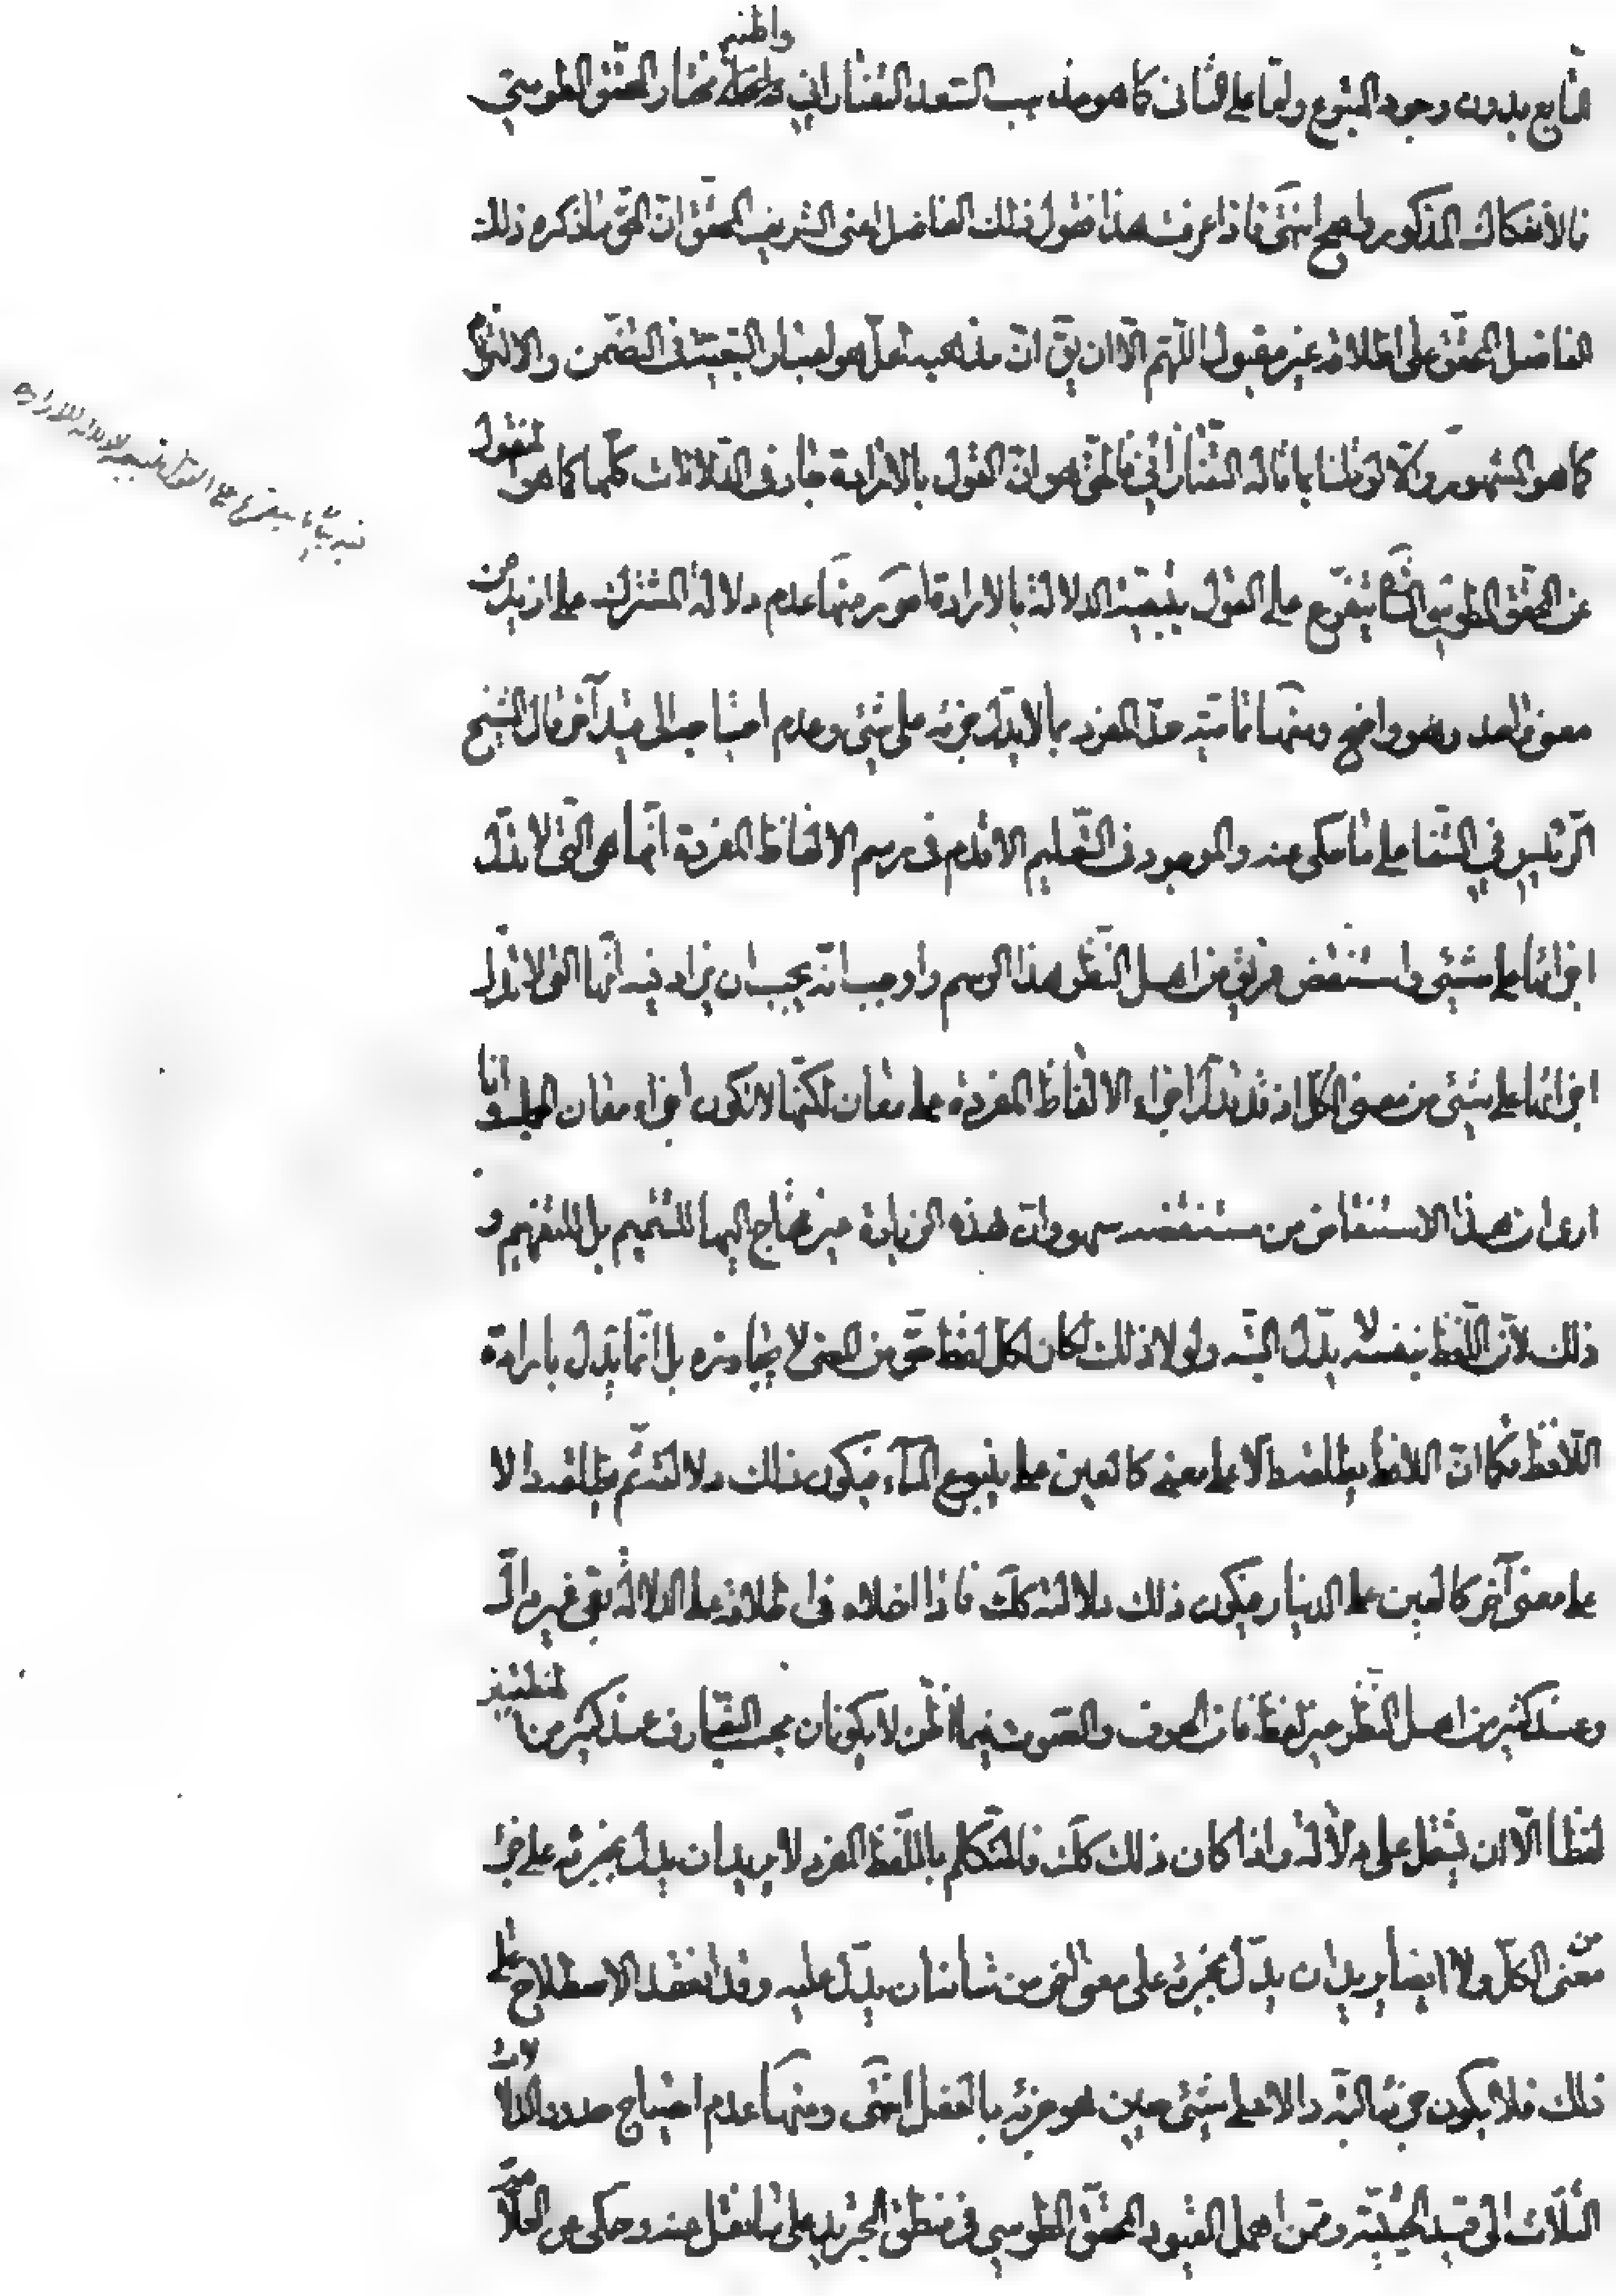 التابع بدون وجود المتبوع واما على الثانى كما هو مذهب السعد التفتازانى مختار المحقق الطوسى
فالانفكاك المذكور واضح انتهى فاذا عرفت هذا فنقول ذلك الفاضل اعنى الشريف المحقق ان الحق ما ذكره ذلك
الفاضل المحقق على اطلاقه غير مقبول اللّهم الّا ان يق انّ مذهبه لعلّ هو اعتبار التبعيّة فى التضمّن والالتزام
كما هو المشهور والّا لو قلنا بما قاله التفتازانى فالحق هو انّ القول بالارادة جار فى الدلالات كلّها كما هو المنقول
عن المحقق الطوسى يتفرّع على القول بتبعيّة الدلالة بالارادة امور منها عدم دلالة المشترك على ازيد من
معنى واحد وهو واضح ومنها تماميّة حدّ المفرد بما لا يدلّ جزئه على شئ وعدم احتياجه الى قيد آخر قال الشيخ
الرّئيس فى الشفا على ما حكى عنه والموجود فى التّعليم الاقدم فى رسم الالفاظ المفردة انّها هى التى لا تدلّ
اجزائها على شئ واستنقض فريق من اهل النّظر هذا الرسم واوجب انّه يجب ان يزاد فيه انّها التى لا تدلّ
اجزائها على شئ من معنى الكلّ اذ قد تدلّ اجزاء الالفاظ المفردة على معان لكنّها لا تكون اجزاء معان الجملة وانا
ارى ان هذا الاستنقاض من مستنقضه سهو وانّ هذه الزيادة غير محتاج اليها للتتميم بل للتفهيم و
ذلك لانّ اللّفظ بنفسه لا يدلّ البتّه ولولا ذلك لكان لكلّ لفظ حقّ من المعنى لا يجاوزه بل انّما يدلّ بارادة
اللّافظ فكما انّ اللافظ يطلقه دالا على معنى كالعين على ينبوع المآء فيكون ذلك دلالته ثم يطلقه دالا
على معنى آخر كالعين على الدينار فيكون ذلك دلالته كك فاذا اخلاه فى اطلاقه عن الدلالة بقى غير دالّ
وعند كثير من اهل النظر غير لفظ فان الحرف والصّوت فيما اظن لا يكونان بحسب التعارف عند كثير من المنطقيين
لفظا الّا ان يشتمل على دلالة واذا كان ذلك كك فالمتكلم باللّفظ المفرد لا يريد ان يدلّ بجزئه على جزء
من معنى الكلّ ولا ايضا يريد ان يدلّ بجزئه على معنى آخر من شانه ان يدلّ عليه وقد انعقد الاصطلاح على
ذلك فلا يكون جزئها البتّه دالا على شئ حين هو جزئه بالفعل انتهى ومنها عدم احتياج حدود الدلالات
الثلاث الى قيد الحيثيّة وممّن اهمل القيود المحقق الطوسى فى منطق التجريد على ما نقل عنه وحكى عن العلّامة